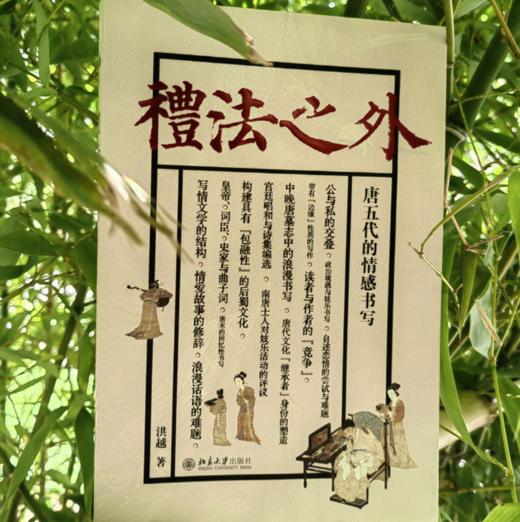 禮法之外
唐五代的情感书写
公与私的交叠。政治境遇与妓乐书写。自述恋情的尝试与难题
带有「边缘」性质的写作。读者与作者的「竞争」。
中晚唐墓志中的浪漫书写。唐代文化「继承者」身份的塑造
宫廷唱和与诗集编选。南唐士人对妓乐活动的评议
构建具有「包融性」的后蜀文化。
皇帝、词臣、史家与曲子词。唐末的回忆性书写
写情文学的结构。情爱故事的修辞。浪漫话语的难题。
洪越 著
北京大学出版社
PEKING UNIVERSITY PRESS